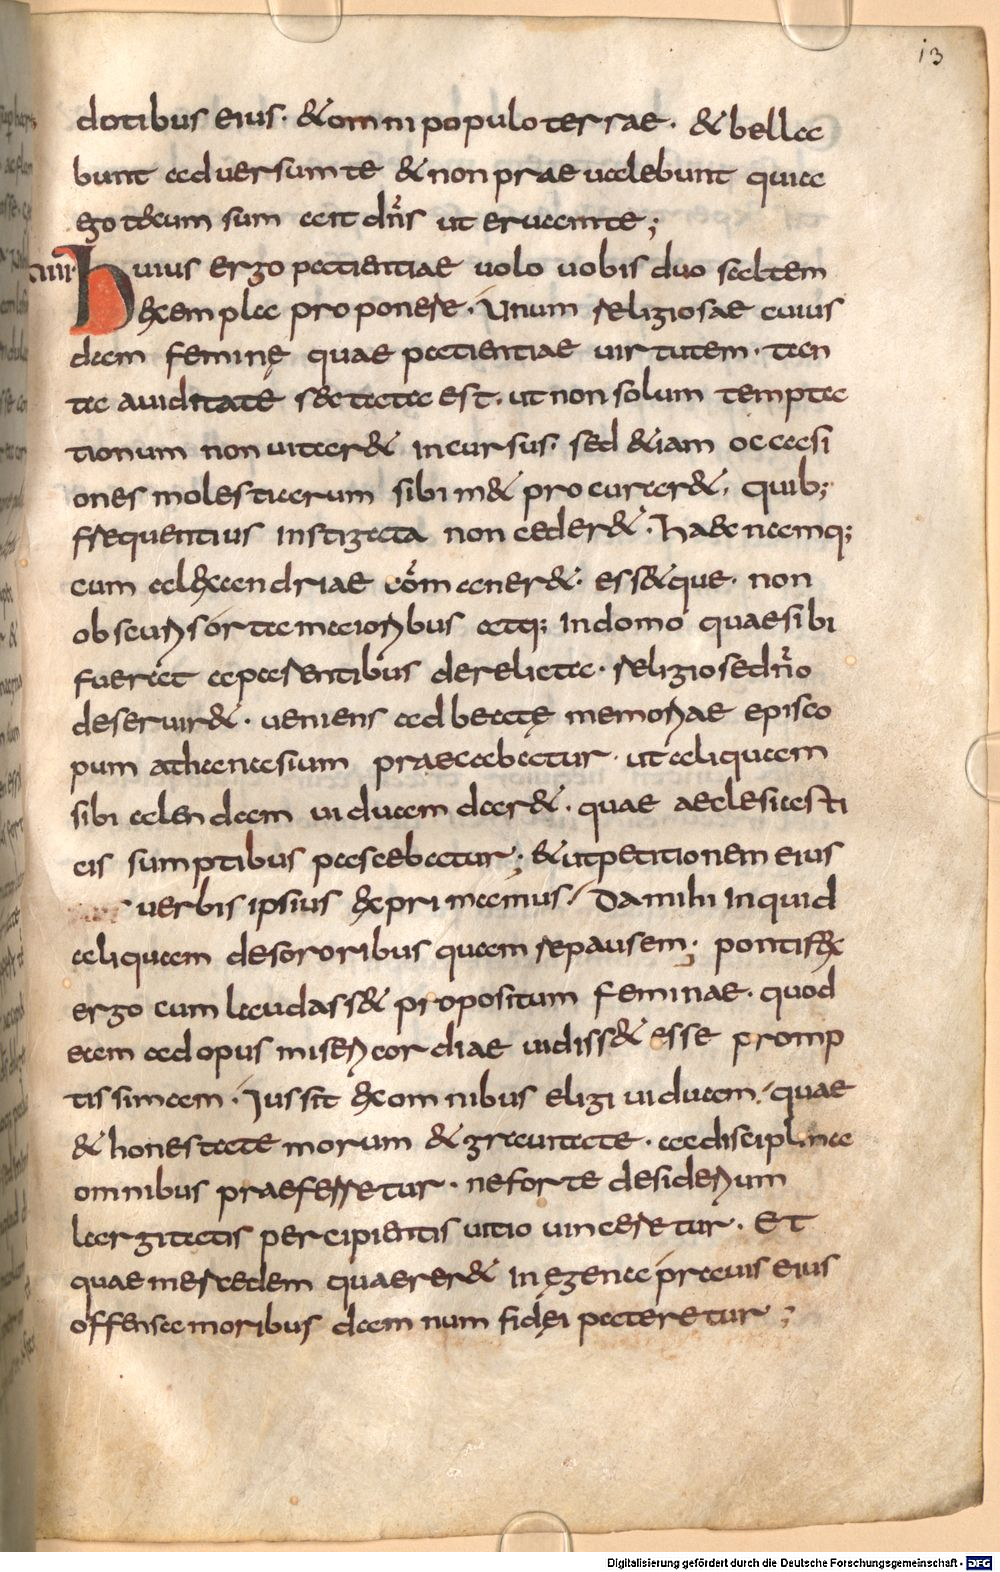 13
dotibus eius · & omni populo terrae · & bella
bunt aduersum te & non praeualebunt quia
ego tecum sum ait dn̄s ut eruam te ;
Huius ergo patientiae uolo uobis duo saltem
exempla proponere · Unum religiosae cuius
dam feminę quae patientiae uirtutem · tan
ta auiditate sectata est · ut non solum tempta
tionum non uitar& incursus · sed &iam occasi
ones molestiarum sibim& procurar& · quib;
frequentius instigata non ceder& · Haec namq;
cum alexandriae cōmaner& · ess&que · non
obscuris orta maioribus atq; in domo quae sibi
fuerat a parentibus derelicta · religiose dn̄o
deseruir& · ueniens ad beatę memoriae episco
pum athanasium praecabatur · ut aliquam
sibi alendam uiduam dar& · quae aeclesiasti
cis sumptibus pascebatur ; & ut petitionem eius
uerbis ipsius exprimamus / Da mihi inquid
aliquam de sororibus quam repausem ; pontifex
ergo cum laudass& propositum feminae · quod
eam ad opus misericordiae uidiss& esse promp
tissimam · Iussit ex omnibus eligi uiduam / quae
& honestate morum & grauitate · ac disciplina
omnibus praeferretur · ne forte desiderium
largitatis percipientis uitio uinceretur · Et
quae mercedem quaerer& in ęgena prauis eius
offensa moribus damnum fidęi pateretur ;
Digitalisierung gefördert durch die Deutsche Forschungsgemeinschaft - DFG